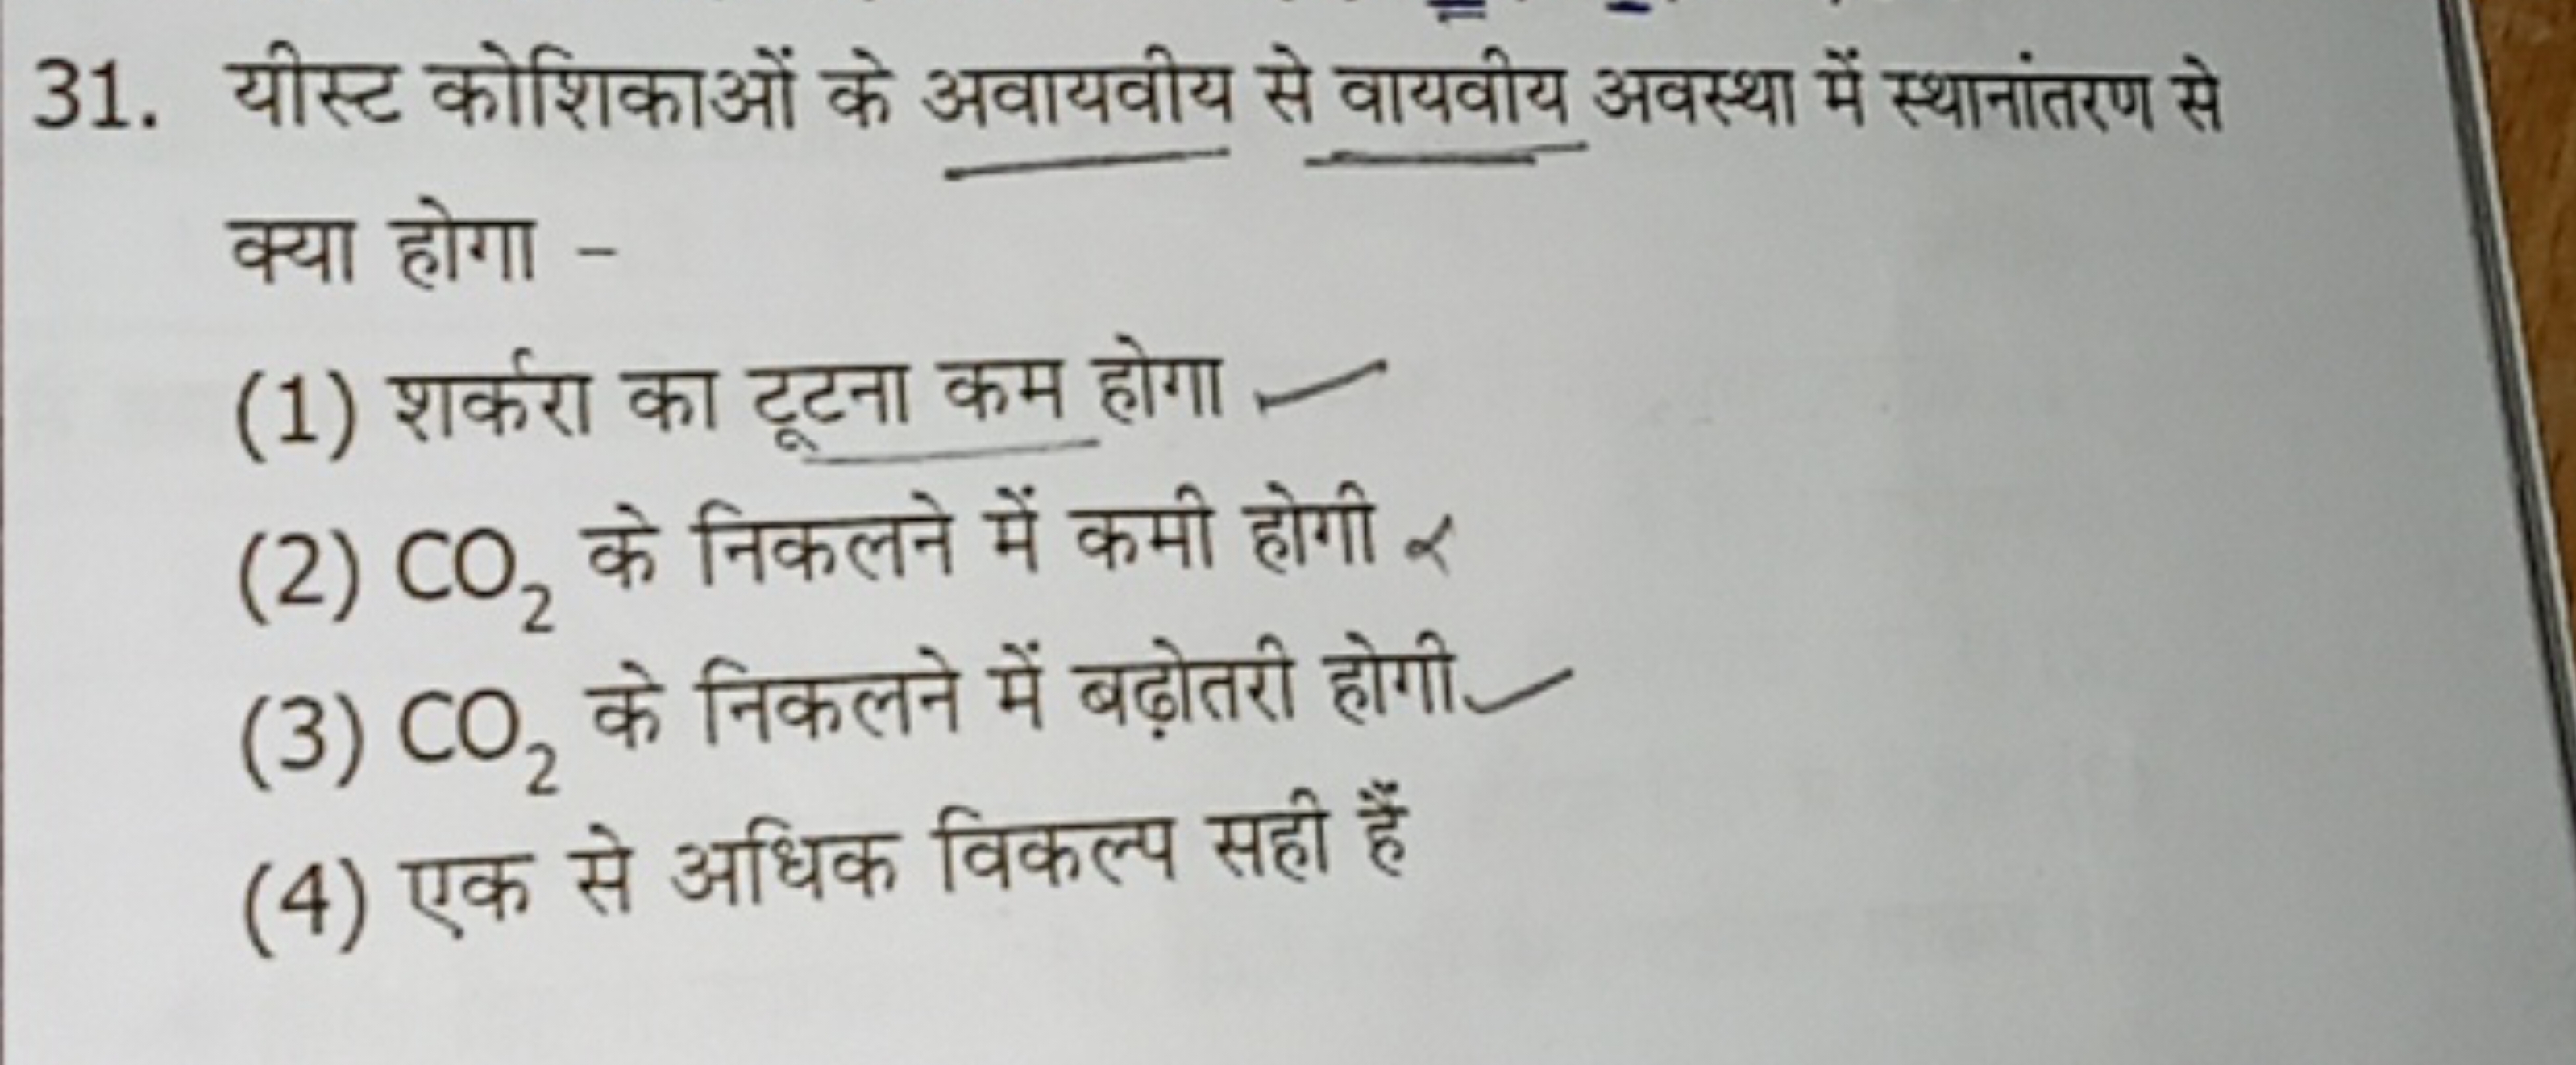 31. यीस्ट कोशिकाओं के अवायवीय से वायवीय अवस्था में स्थानांतरण से
क्या होगा -
(1) शर्करा का टूटना कम होगा
(2) CO₂ के निकलने में कमी होगी
(3) CO₂ के निकलने में बढ़ोतरी होगी
(4) एक से अधिक विकल्प सही हैं